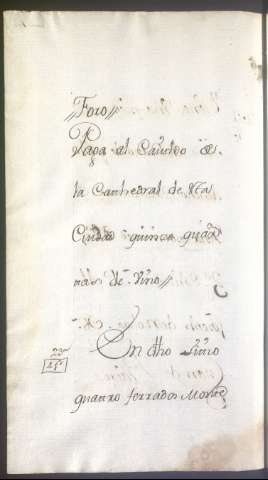 //Foro//
Paga al Cavildo de
la Cathedral de esta
Ciudad quince quar
tas de Vino//
En dho sitio
quatro ferrados Monte